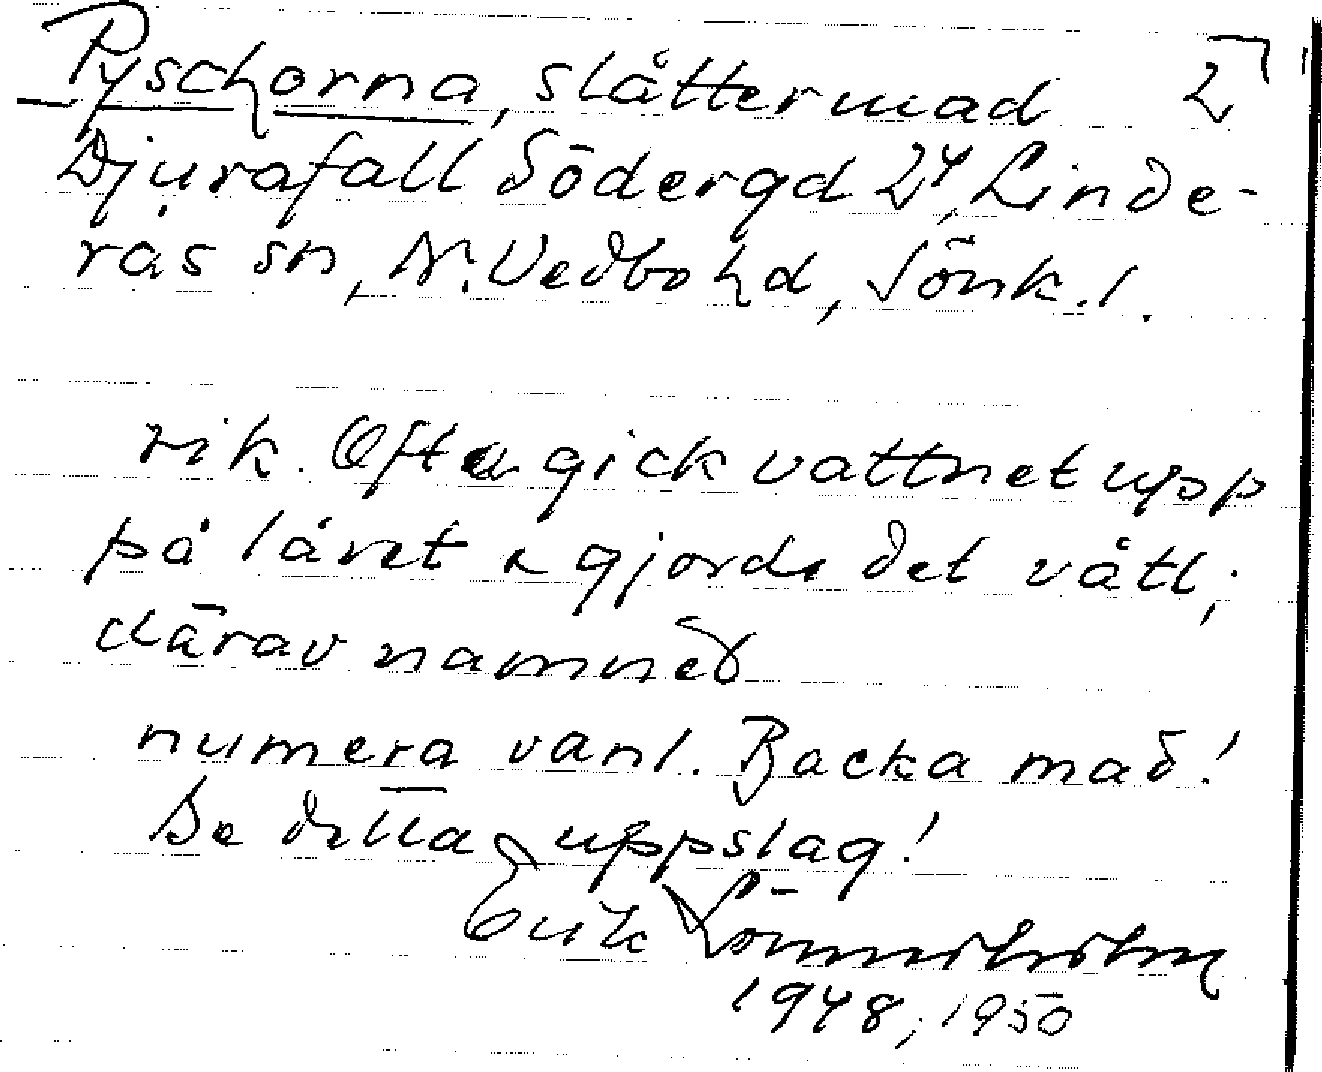 Pyschorna, slåttermad 2
Djurafall Södergd 2⁴, Linde-
rås sn, N. Vedbo hd, Jönk. l.
rik. Ofta gick vattnet upp
på låret & gjorde det vått;
därav namnet
numera vanl. Backa mad!
Se detta uppslag!
Erik Lönnerholm
1948, 1950